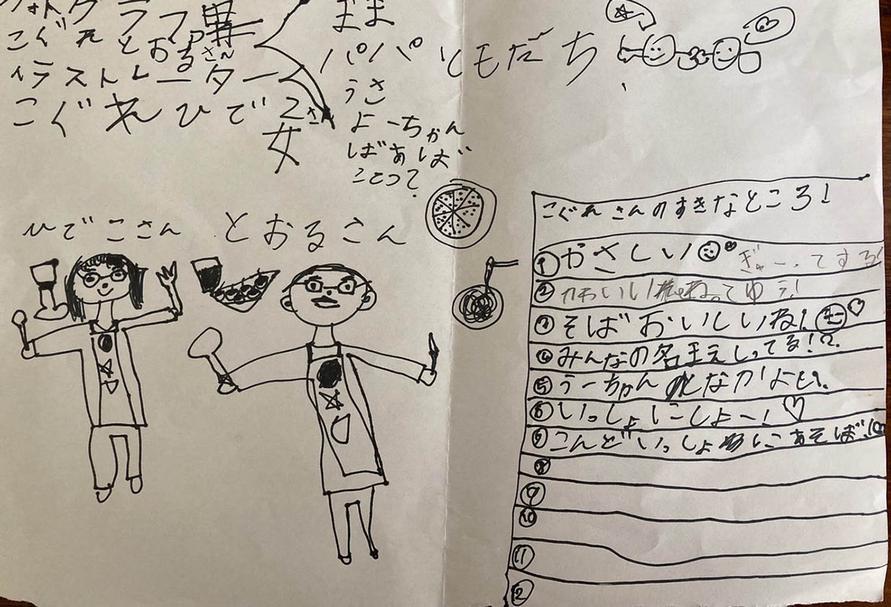 ォトグラフ
こぐれとおるさん
イラストレーター
こぐれひで
女
まま
パパ
うさ
よーちゃん
ばあばあば
ともだち
ひでこさん
とおるさん
こぐれさんのすきなところ!
① やさしい ぎゅーってする
② かわいいねってゆう!
③ そばおいしいね!
④ みんなの名まえしってる!?
⑤ うーちゃんとなかよし
⑥ いっしょにしよー!
⑦ こんどいっしょにあそぼ!
⑧
⑨
⑩
⑪
⑫